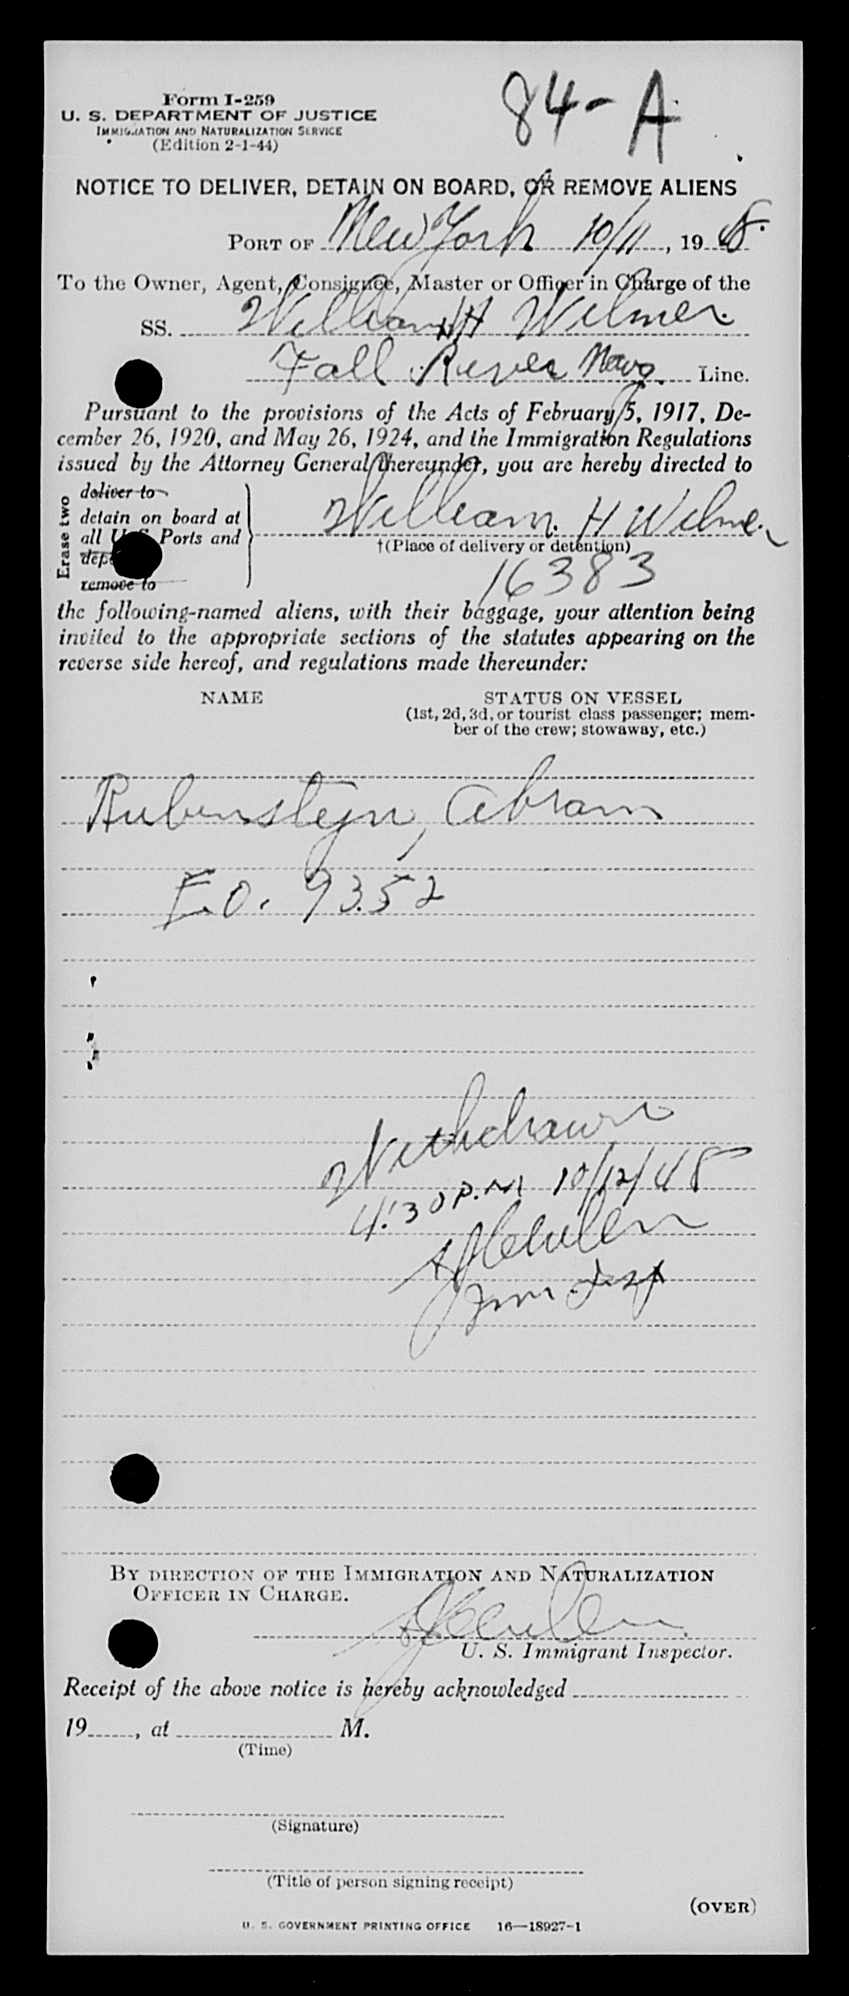 Form I-259
84-A
U. S. DEPARTMENT OF JUSTICE
IMMIGRATION AND NATURALIZATION SERVICE
(Edition 2-1-44)
NOTICE TO DELIVER, DETAIN ON BOARD, OR REMOVE ALIENS
PORT OF New York 10/11, 1948.
To the Owner, Agent, Consignee, Master or Officer in Charge of the
SS. William H Wilmer
Fall River Nav. Line.
Pursuant to the provisions of the Acts of February 5, 1917, De-
cember 26, 1920, and May 26, 1924, and the Immigration Regulations
issued by the Attorney General thereunder, you are hereby directed to
Erase two
deliver to
detain on board at
all U.S. Ports and
remove to
William. H Wilmer
†(Place of delivery or detention)
16383
the following-named aliens, with their baggage, your attention being
invited to the appropriate sections of the statutes appearing on the
reverse side hereof, and regulations made thereunder:
NAME
STATUS ON VESSEL
(1st, 2d, 3d, or tourist class passenger; mem-
ber of the crew; stowaway, etc.)
Rubenstejn, Abram
E.O. 9352
Withdrawn
4:30 P.M 10/12/48
Imm Insp
BY DIRECTION OF THE IMMIGRATION AND NATURALIZATION
OFFICER IN CHARGE.
U. S. Immigrant Inspector.
Receipt of the above notice is hereby acknowledged
19......, at ...................... M.
(Time)
(Signature)
(Title of person signing receipt)
(OVER)
U. S. GOVERNMENT PRINTING OFFICE 16—18927-1